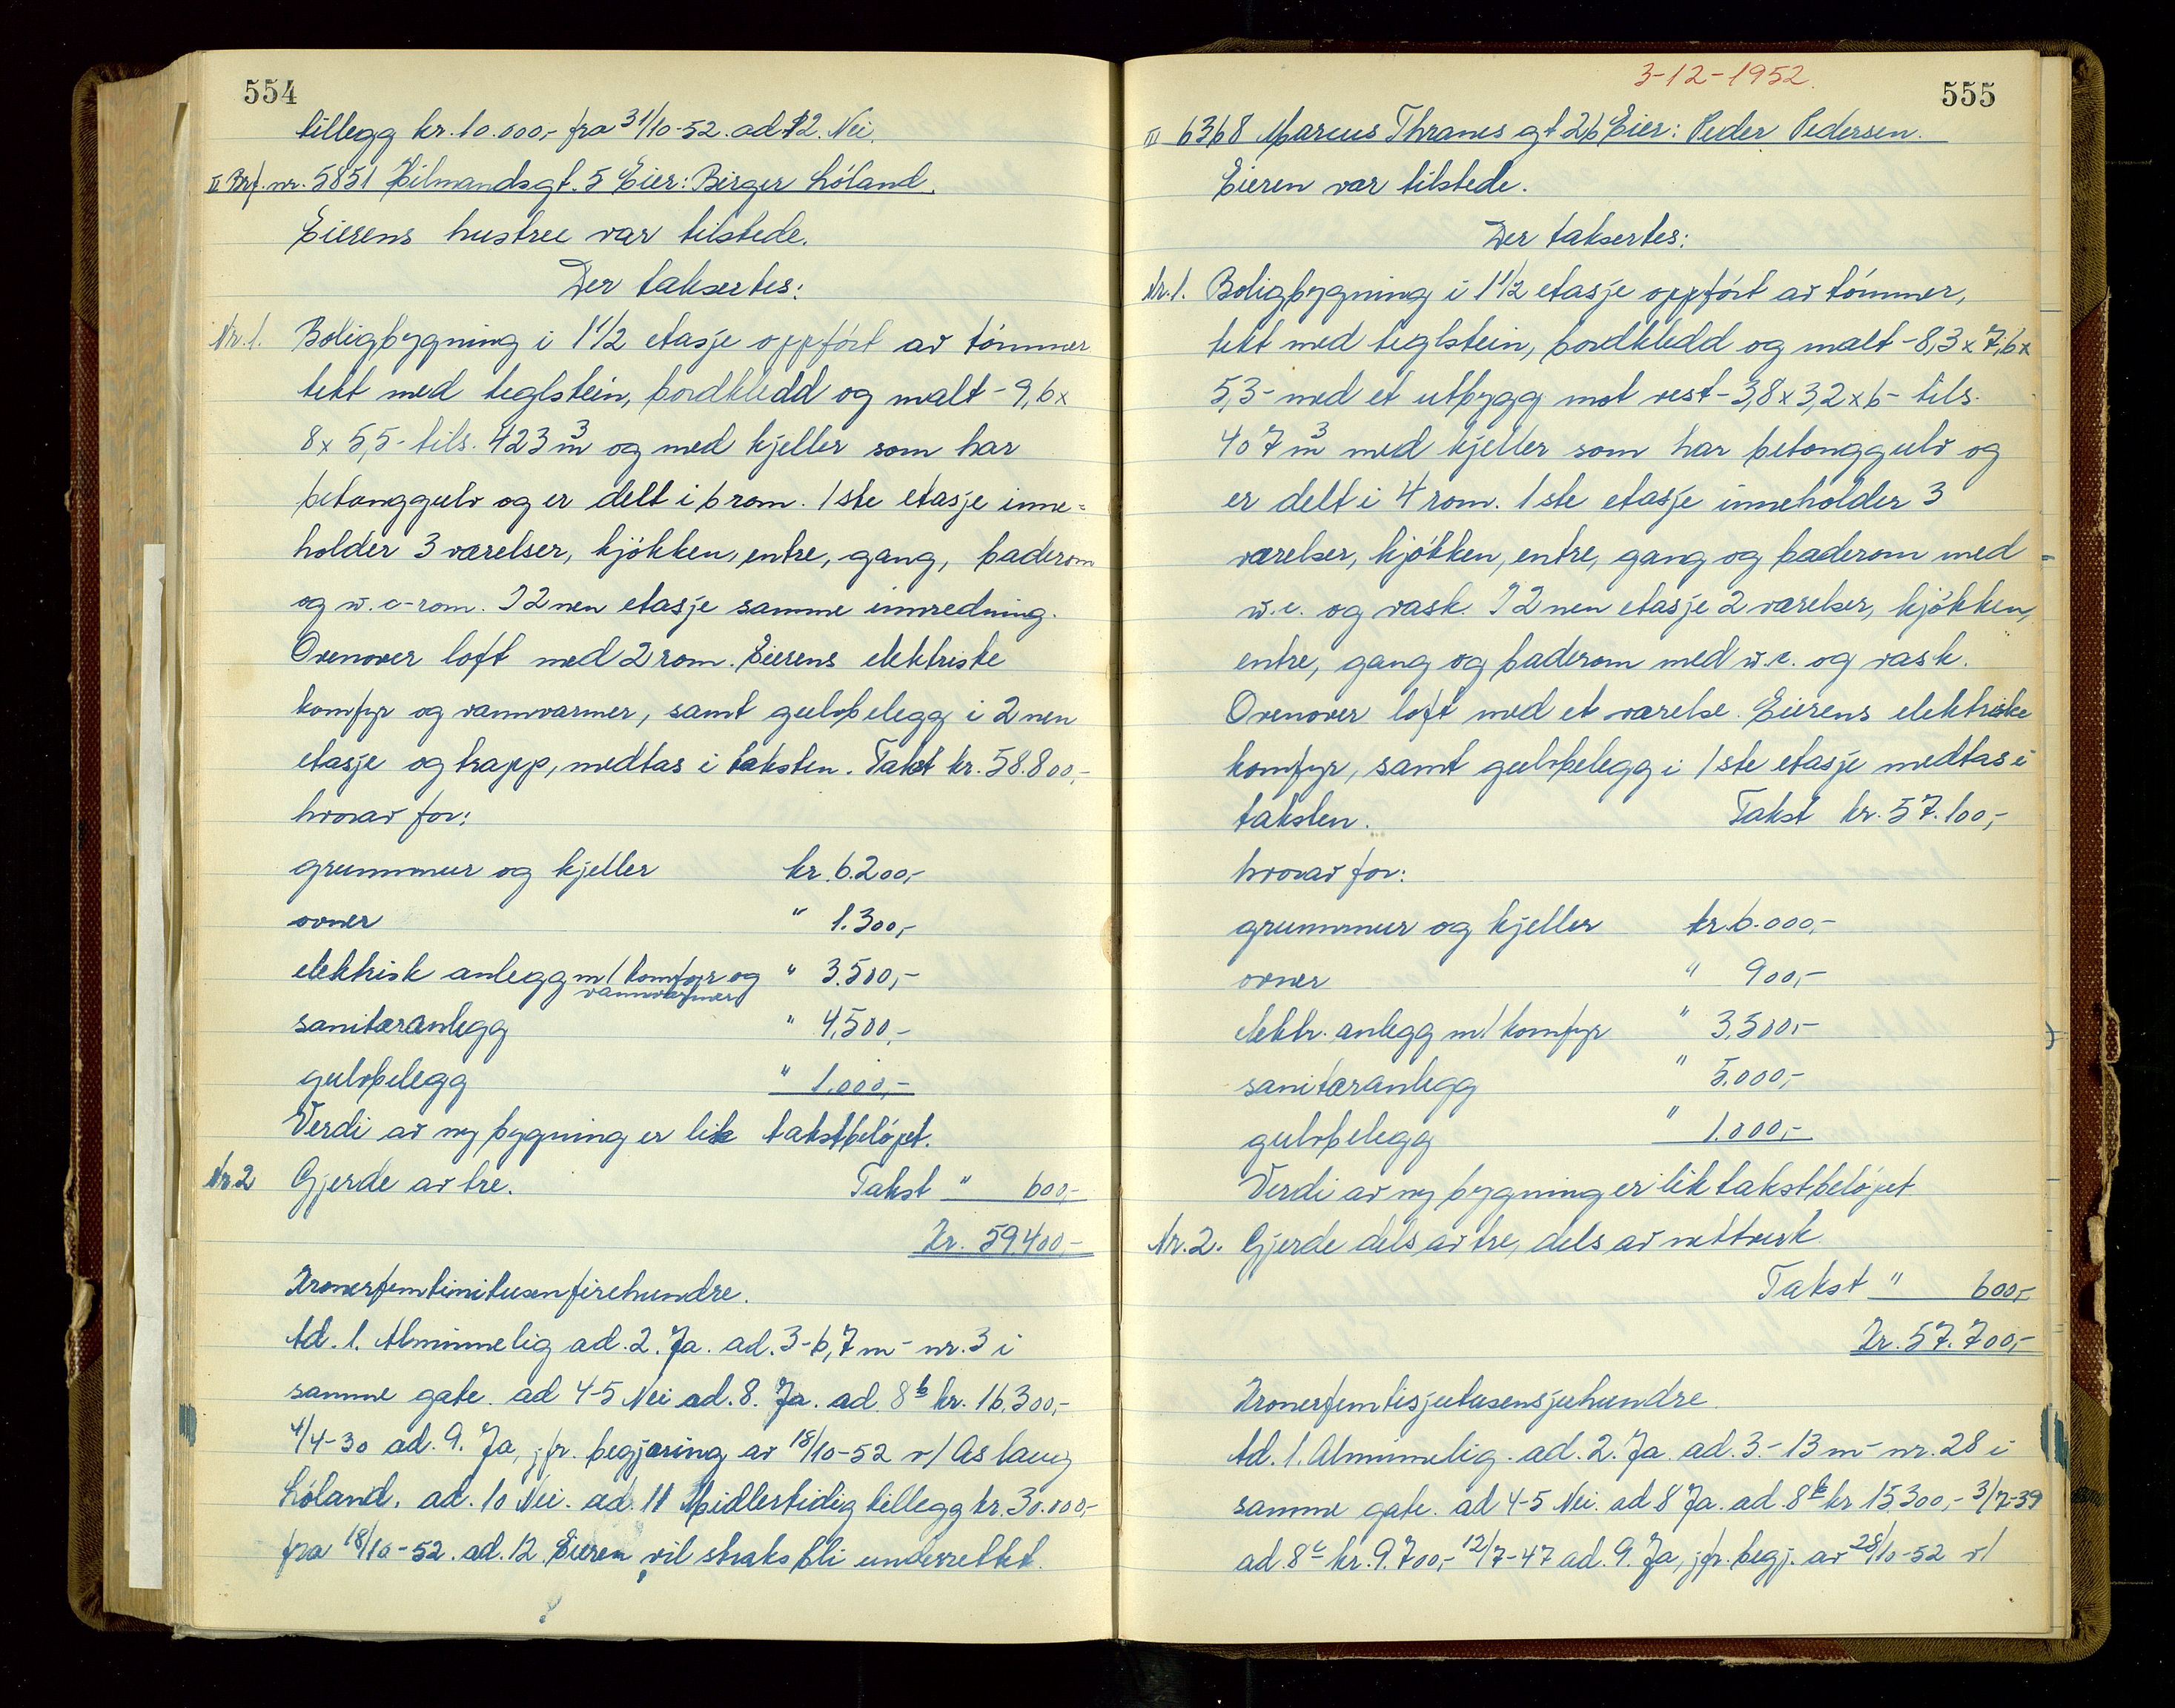 554
tillegg kr. 10.000,- fra 31/10-52. ad 12. Nei.
II Brf. nr. 5851 Hilmandsgt. 5 Eier: Birger Lóland.
Eierens hustru var tilstede.
Der taksertes:
Nr. 1. Boligbygning i 1 1/2 etasje oppfórt av tómmer
tekt med teglstein, bordkledd og malt - 9,6 x
8 x 5,5 - tils. 423 m3 og med kjeller som har
betonggulv og er delt i 6 rom. 1ste etasje inne=
holder 3 værelser, kjókken, entre, gang, baderom
og w.c-rom. I 2nen etasje samme innredning.
Ovenover loft med 2 rom. Eierens elektriske
komfyr og vannvarmer, samt gulvbelegg i 2nen
etasje og trapp, medtas i taksten. Takst kr. 58.800,-
hvorav for:
grunnmur og kjeller kr. 6.200,-
ovner " 1.300,-
elektrisk anlegg m/ komfyr og vannvarmer " 3.500,-
sanitæranlegg " 4.500,-
gulvbelegg " 1.000,-
Verdi av ny bygning er lik takstbelópet.
Nr. 2 Gjerde av tre. Takst " 600,-
Kr. 59.400,-
Kronerfemtinitusenfirehundre.
Ad. 1. Alminnelig ad. 2. Ja. ad. 3 - 6,7 m - nr. 3 i
samme gate. ad 4-5 Nei ad. 8. Ja. ad. 8 b kr. 16.300,-
4/4-30 ad. 9. Ja, jfr. begjæring av 18/10-52 v/ Aslaug
Lóland. ad. 10 Nei. ad. 11 Midlertidig tillegg kr. 30.000,-
fra 18/10-52. ad. 12. Eieren vil straks bli underrettet.
3-12-1952.
555
II 6368 Marcus Thranes gt 26 Eier: Peder Pedersen.
Eieren var tilstede.
Der taksertes:
Nr. 1. Boligbygning i 1 1/2 etasje oppfórt av tómmer,
tekt med teglstein, bordkledd og malt - 8,3 x 7,6 x
5,3 - med et utbygg mot vest - 3,8 x 3,2 x 6 - tils.
407 m3 med kjeller som har betonggulv og
er delt i 4 rom. 1ste etasje inneholder 3
værelser, kjókken, entre, gang og baderom med
w.c. og vask. I 2nen etasje 2 værelser, kjókken,
entre, gang og baderom med w.c. og vask.
Ovenover loft med et værelse. Eierens elektriske
komfyr, samt gulvbelegg i 1ste etasje medtas i
taksten. Takst kr. 57.100,-
hvorav for:
grunnmur og kjeller kr. 6.000,-
ovner " 900,-
elektr. anlegg m/ komfyr " 3.500,-
sanitæranlegg " 5.000,-
gulvbelegg " 1.000,-
Verdi av ny bygning er lik takstbelópet
Nr. 2. Gjerde dels av tre, dels av nettverk
Takst " 600,-
Kr. 57.700,-
Kronerfemtisjutusensjuhundre.
Ad. 1. Alminnelig. ad. 2. Ja. ad. 3. - 13 m - nr. 28 i
samme gate. ad 4-5 Nei. ad 8 Ja. ad. 8 b kr 15.300,- 3/7-39
ad. 8 c kr. 9.700,- 12/7-47 ad. 9. Ja, jfr. begj. av 28/10-52 v/